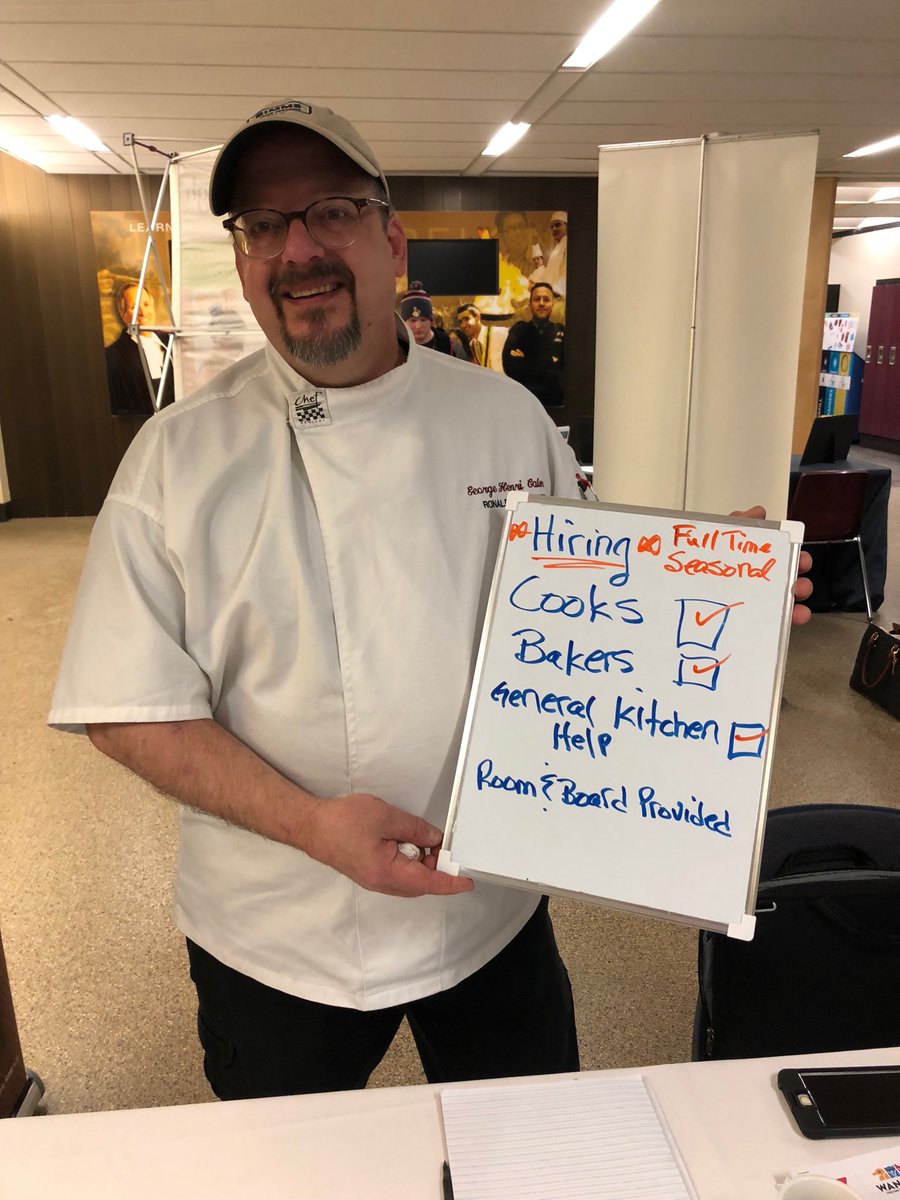 SIMMS
LEARN
Chef
George Henri
Hiring
Full Time
Seasonal
Cooks
Bakers
General Kitchen
Help
Room & Board Provided
WAN